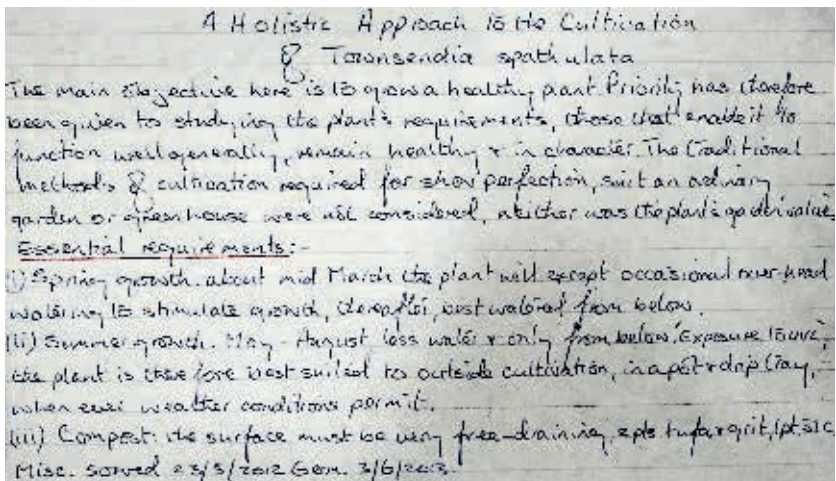 A Holistic Approach to the Cultivation
of Townsendia spathulata
The main objective here is to grow a healthy plant. Priority has therefore
been given to studying the plant's requirements, those that enable it to
function well generally, remain healthy & in character. The traditional
methods of cultivation required for show perfection, suit an ordinary
garden or greenhouse were not considered, neither was the plant's garden value.
Essential requirements:-
(i) Spring growth. about mid March the plant will except occasional over-head
watering to stimulate growth, thereafter, best watered from below.
(ii) Summer growth. May - August less water & only from below. Exposure to uv,
the plant is therefore best suited to outside cultivation, in a pot & drip tray,
when ever weather conditions permit.
(iii) Compost: the surface must be very free-draining, 2pts tufa & grit, 1pt. J1C
Misc. Sowed 23/3/2012 Germ. 3/6/2013.